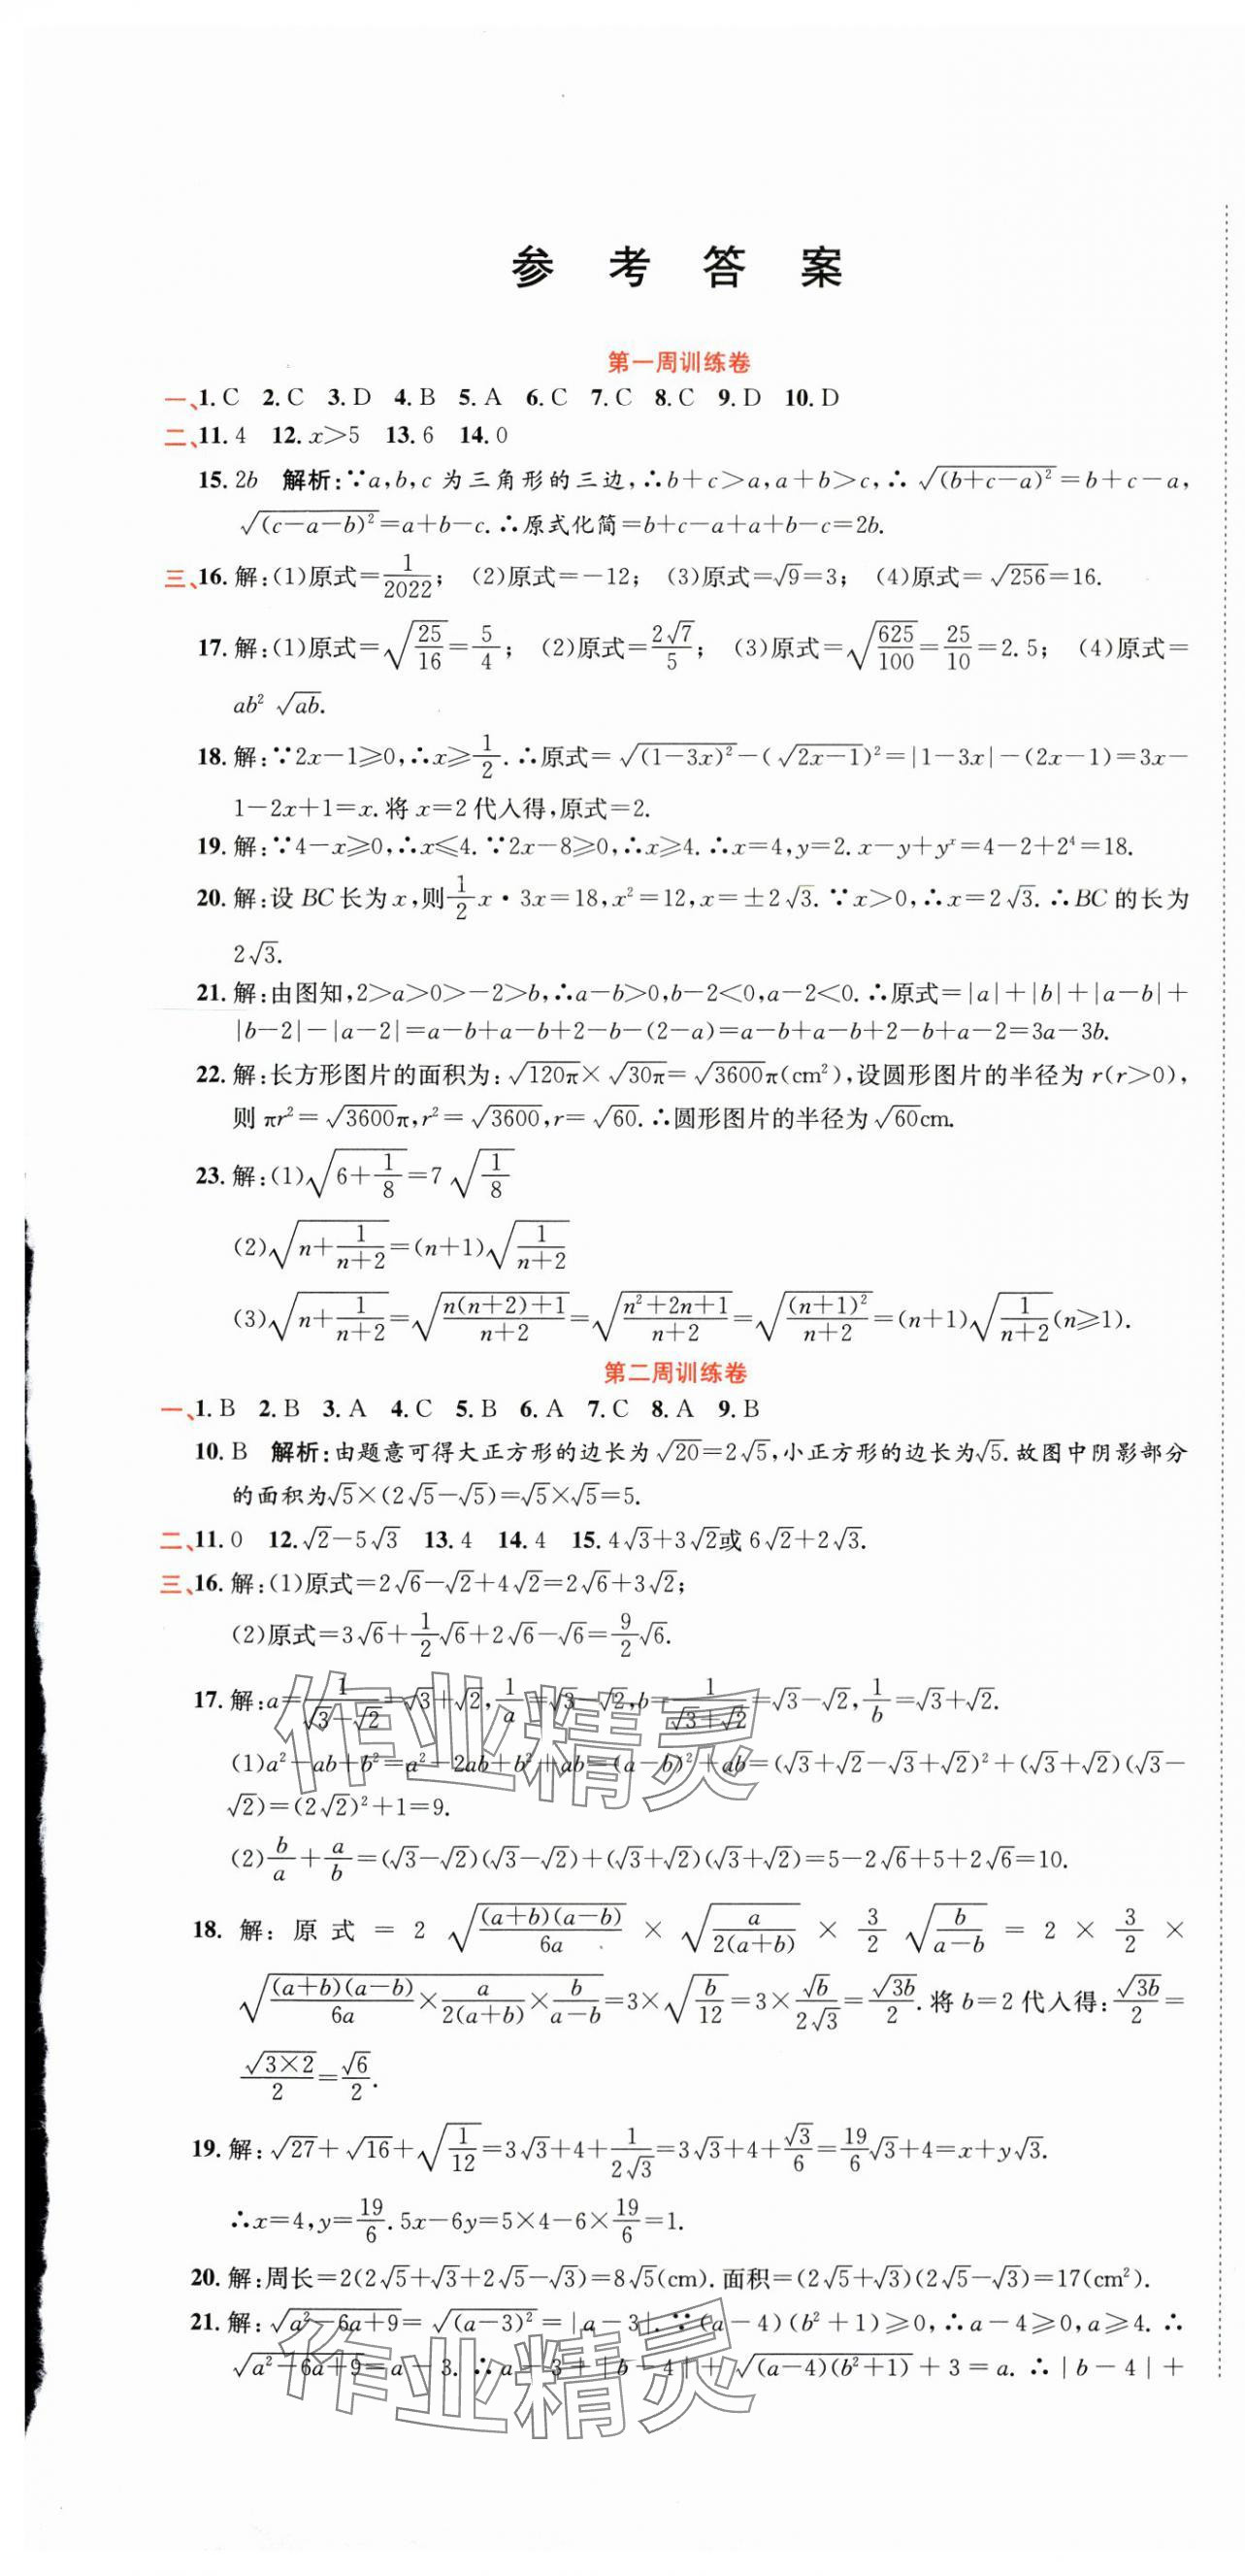 参 考 答 案
第一周训练卷
一、1. C 2. C 3. D 4. B 5. A 6. C 7. C 8. C 9. D 10. D
二、11. 4 12. x>5 13. 6 14. 0
15. 2b 解析:∵a,b,c 为三角形的三边,∴b+c>a,a+b>c,∴√((b+c−a)²)=b+c−a,
√((c−a−b)²)=a+b−c.∴原式化简=b+c−a+a+b−c=2b.
三、16. 解:(1)原式=1/2022; (2)原式=−12; (3)原式=√9=3; (4)原式=√256=16.
17. 解:(1)原式=√(25/16)=5/4; (2)原式=2√7/5; (3)原式=√(625/100)=25/10=2.5; (4)原式=
ab² √ab.
18. 解:∵2x−1≥0,∴x≥1/2.∴原式=√((1−3x)²)−(√(2x−1))²=|1−3x|−(2x−1)=3x−
1−2x+1=x.将 x=2 代入得,原式=2.
19. 解:∵4−x≥0,∴x≤4.∵2x−8≥0,∴x≥4.∴x=4,y=2.x−y+yˣ=4−2+2⁴=18.
20. 解:设 BC 长为 x,则1/2x·3x=18,x²=12,x=±2√3.∵x>0,∴x=2√3.∴BC 的长为
2√3.
21. 解:由图知,2>a>0>−2>b,∴a−b>0,b−2<0,a−2<0.∴原式=|a|+|b|+|a−b|+
|b−2|−|a−2|=a−b+a−b+2−b−(2−a)=a−b+a−b+2−b+a−2=3a−3b.
22. 解:长方形图片的面积为:√120π×√30π=√3600π(cm²),设圆形图片的半径为 r(r>0),
则 πr²=√3600π,r²=√3600,r=√60.∴圆形图片的半径为√60cm.
23. 解:(1)√(6+1/8)=7√(1/8)
(2)√(n+1/(n+2))=(n+1)√(1/(n+2))
(3)√(n+1/(n+2))=√((n(n+2)+1)/(n+2))=√((n²+2n+1)/(n+2))=√((n+1)²/(n+2))=(n+1)√(1/(n+2))(n≥1).
第二周训练卷
一、1. B 2. B 3. A 4. C 5. B 6. A 7. C 8. A 9. B
10. B 解析:由题意可得大正方形的边长为√20=2√5,小正方形的边长为√5.故图中阴影部分
的面积为√5×(2√5−√5)=√5×√5=5.
二、11. 0 12. √2−5√3 13. 4 14. 4 15. 4√3+3√2或 6√2+2√3.
三、16. 解:(1)原式=2√6−√2+4√2=2√6+3√2;
(2)原式=3√6+1/2√6+2√6−√6=9/2√6.
17. 解:a=1/(√3−√2)=√3+√2,1/a=√3−√2,b=1/(√3+√2)=√3−√2,1/b=√3+√2.
(1)a²−ab+b²=a²−2ab+b²+ab=(a−b)²+ab=(√3+√2−√3+√2)²+(√3+√2)(√3−
√2)=(2√2)²+1=9.
(2)b/a+a/b=(√3−√2)(√3−√2)+(√3+√2)(√3+√2)=5−2√6+5+2√6=10.
18. 解: 原 式 = 2√((a+b)(a−b)/6a) × √(a/2(a+b)) × 3/2 √(b/(a−b)) = 2 × 3/2 ×
√((a+b)(a−b)/6a×a/2(a+b)×b/(a−b))=3×√(b/12)=3×√b/2√3=√3b/2.将 b=2 代入得:√3b/2=
√(3×2)/2=√6/2.
19. 解:√27+√16+√(1/12)=3√3+4+1/2√3=3√3+4+√3/6=19/6√3+4=x+y√3.
∴x=4,y=19/6.5x−6y=5×4−6×19/6=1.
20. 解:周长=2(2√5+√3+2√5−√3)=8√5(cm).面积=(2√5+√3)(2√5−√3)=17(cm²).
21. 解:√(a²−6a+9)=√((a−3)²)=|a−3|.∵(a−4)(b²+1)≥0,∴a−4≥0,a≥4.∴
√(a²−6a+9)=a−3.∴a−3+|b−4|+√((a−4)(b²+1))+3=a.∴|b−4|+
作业精灵
作业精灵